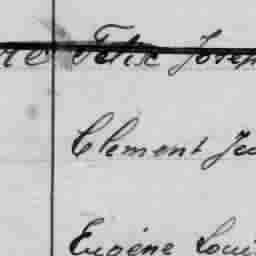 Felix Josep
Clement Ju
Eugéne Loui